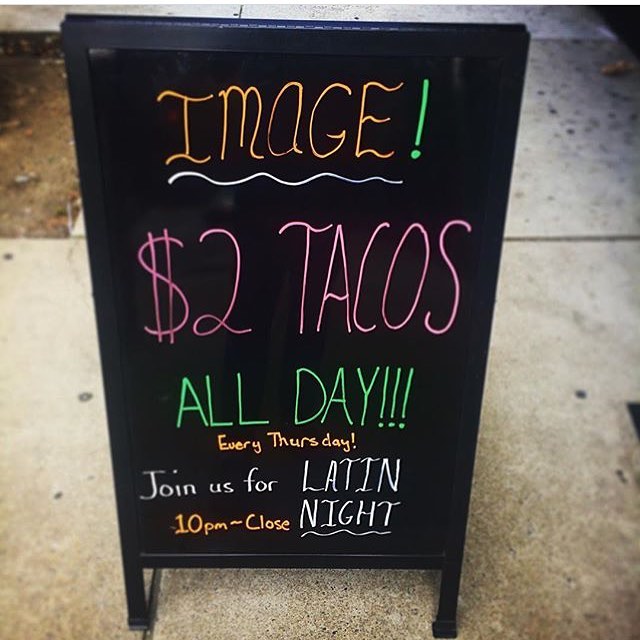 IMAGE!
$2 TACOS
ALL DAY!!!
Every Thursday!
Join us for LATIN
10pm~Close NIGHT